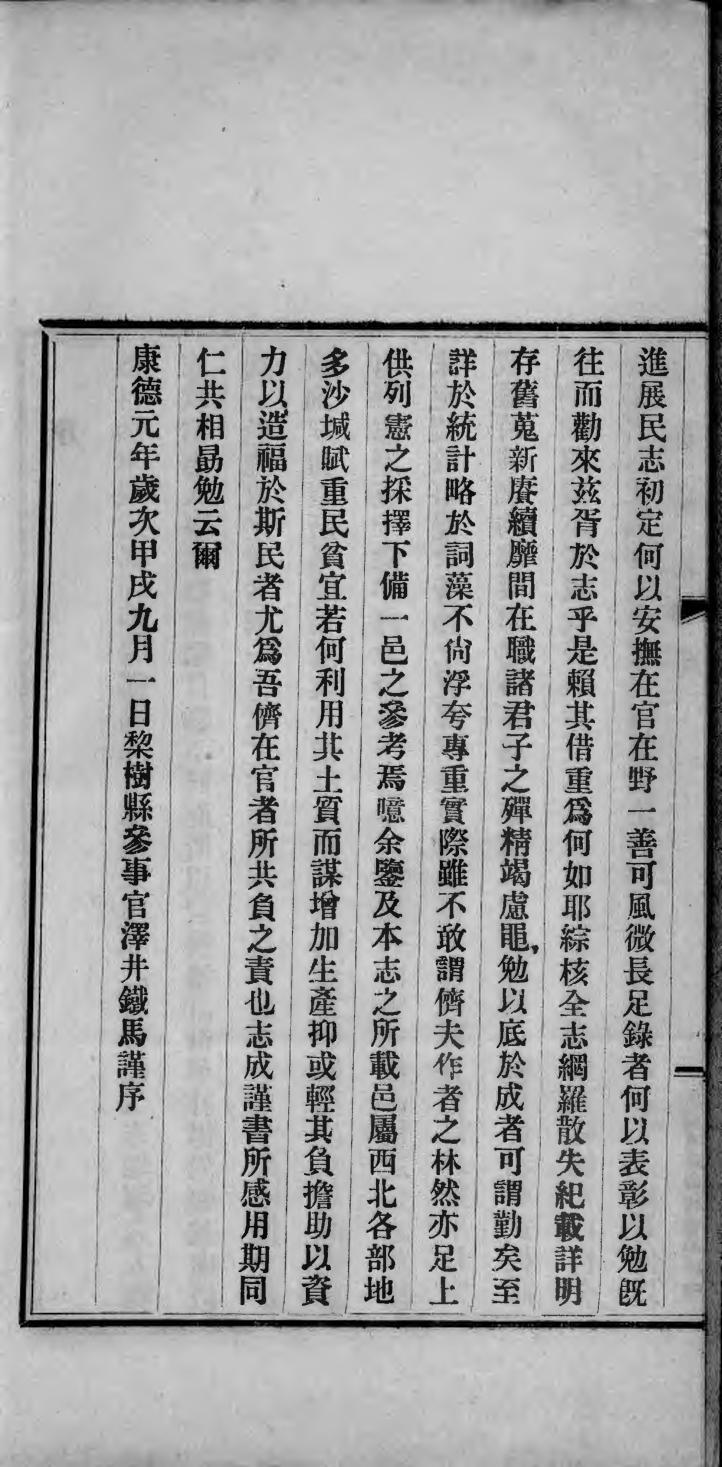 進展民志初定何以安撫在官在野一善可風微長足錄者何以表彰以勉既
往而勸來茲胥於志乎是賴其借重爲何如耶綜核全志網羅散失紀載詳明
存舊蒐新賡續靡間在職諸君子之殫精竭慮黽勉以底於成者可謂勤矣至
詳於統計略於詞藻不尙浮夸專重實際雖不敢謂儕夫作者之林然亦足上
供列憲之採擇下備一邑之參考焉噫余鑒及本志之所載邑屬西北各部地
多沙堿賦重民貧宜若何利用其土質而謀增加生產抑或輕其負擔助以資
力以造福於斯民者尤爲吾儕在官者所共負之責也志成謹書所感用期同
仁共相勗勉云爾
康德元年歲次甲戌九月一日棃樹縣參事官澤井鐵馬謹序